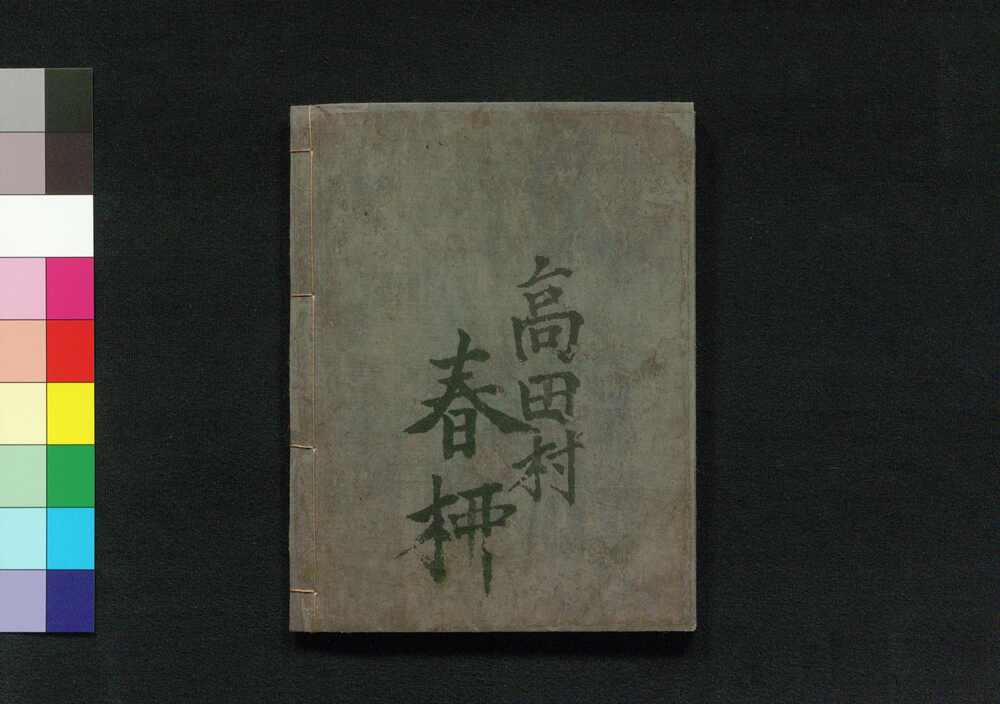 高田村
春栁